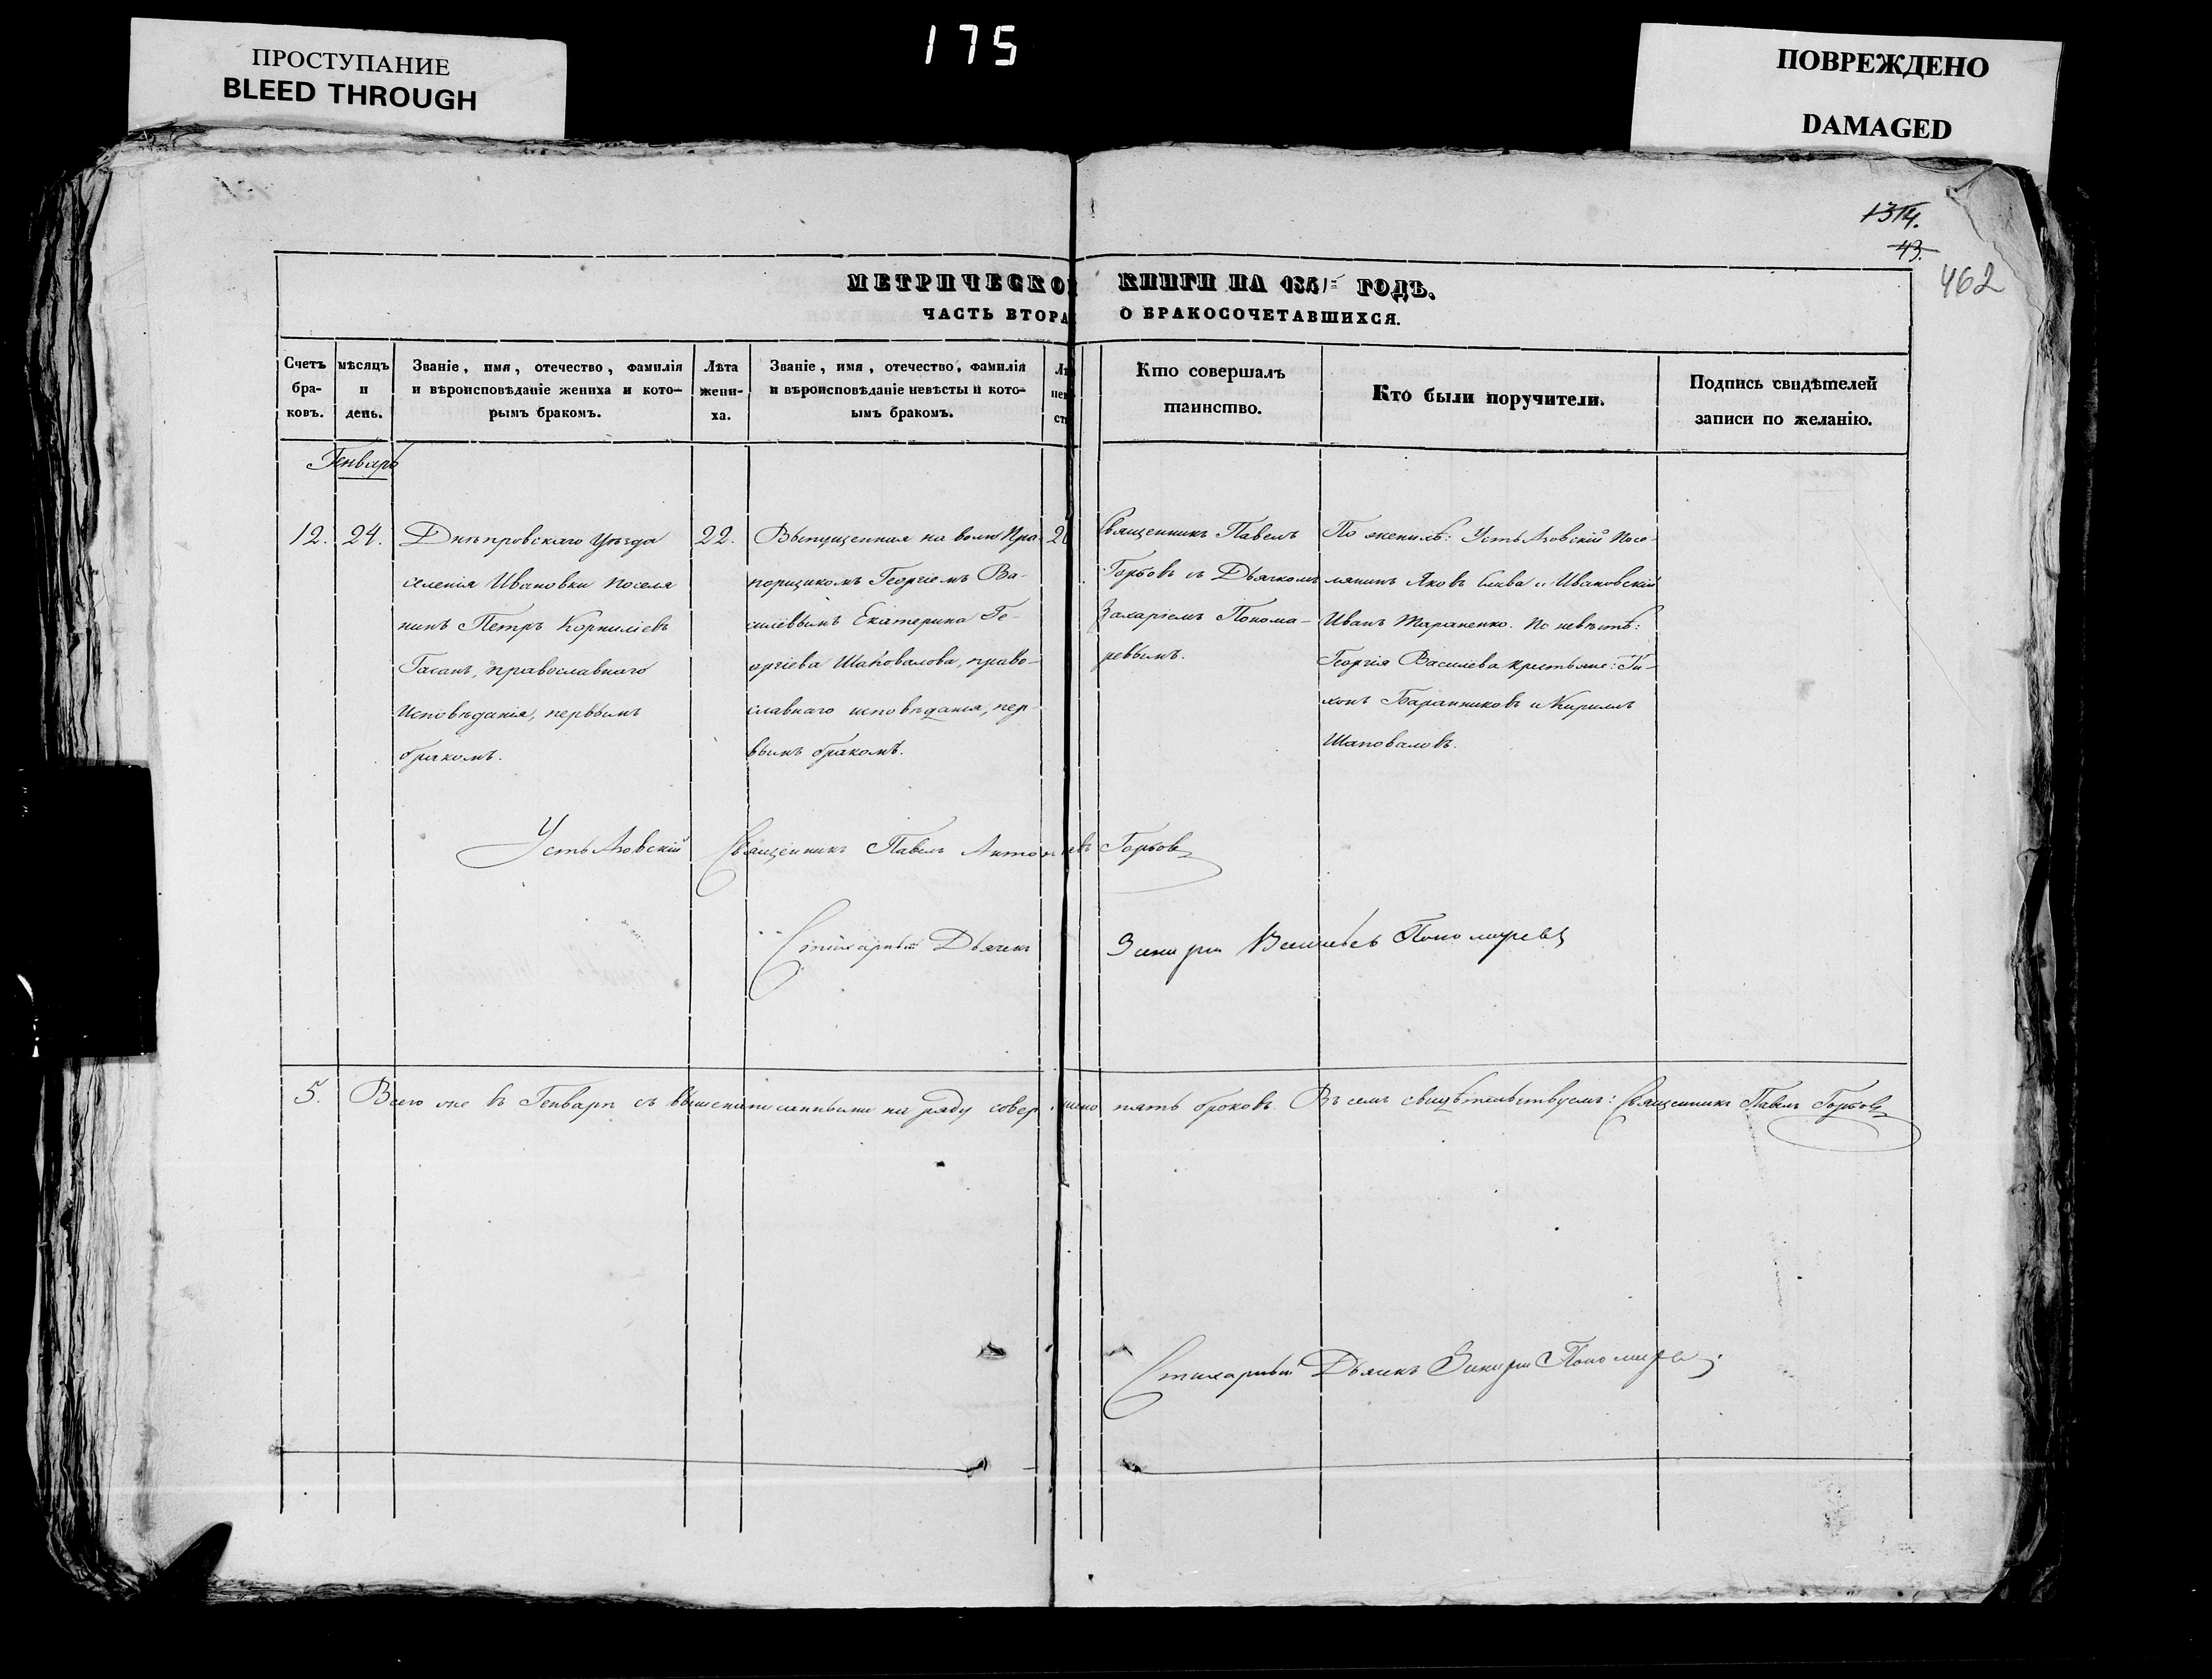 ПРОСТУПАНИЕ
BLEED THROUGH
175
ПОВРЕЖДЕНО
DAMAGED
43.
462
МЕТРИЧЕСКО КНИГИ НА 1841 ГОДЪ.
ЧАСТЬ ВТОРА О БРАКОСОЧЕТАВШИХСЯ.
Счетъ
бра-
ковъ.
мѣсяцъ
и
день.
Званіе, имя, отечество, фамилія
и вѣроисповѣданіе жениха и кото-
рымъ бракомъ.
Лѣта
жени-
ха.
Званіе, имя, отечество, фамилія
и вѣроисповѣданіе невѣсты и кото-
ымъ бракомъ.
Кто совершалъ
таинство.
Кто были поручители.
Подпись свидѣтелей
записи по желанію.
Генварь
12. 24.
Днѣпровскаго Уѣзда
селенія Ивановки поселя
нинъ Петръ Корниліевъ
Гасанъ, православнаго
Исповѣданія, первымъ
бракомъ.
22.
Выпущенная на волю Пра-
порщикомъ Георгіемъ Ва-
силевымъ Екатерина Ге-
оргіева Шаповалова, право-
славнаго исповѣданія, пер-
вымъ бракомъ.
Священникъ Павелъ
Горбовъ съ Дьячкомъ
Захаріемъ Понома-
ревымъ.
По женихѣ: Усть Азовскій посе-
лянинъ Яковъ Слива и Ивановскій
Иванъ Тараненко. По невѣстѣ:
Георгія Василева крестьяне: Ти-
хонъ Баранниковъ и Кириллъ
Шаповаловъ.
Усть Азовскій Священникъ Павелъ Горбовъ
Стихарный Дьячекъ Пономаревъ
5. Всего же въ Генварѣ съ вышенаписанными на ряду совершено пять браковъ. Въ семъ свидѣтельствуемъ: Священникъ Павелъ Горбовъ
Стихарный Дьячекъ Пономаревъ